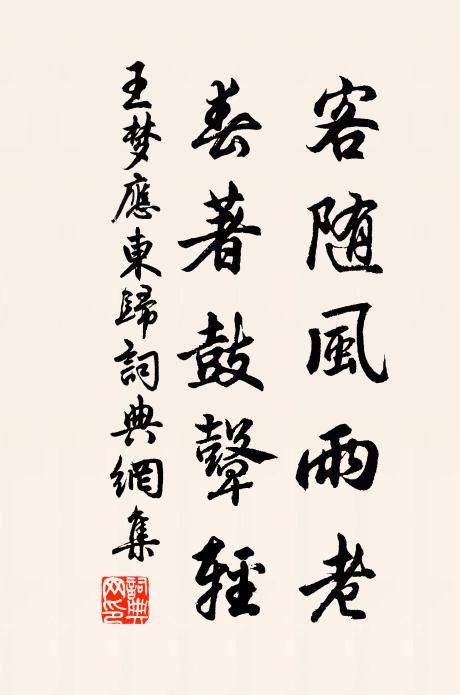 客随風雨老
春著鼓鼙輕
王梦應東歸詞典網集
詞典
网印